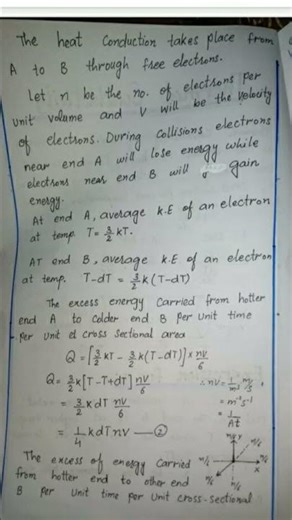 The heat conduction takes place from
A to B through free electrons.
Let n be the no. of electrons per
unit volume and V will be the velocity
of electrons. During Collisions electrons
near end A will lose energy while
electrons near end B will gain
energy.
At end A, average K.E of an electron
at temp. T = 3/2 kT.
AT end B, average K.E of an electron
at temp. T-dT = 3/2 k (T-dT)
The excess energy Carried from hotter
end A to Colder end B per Unit time
per unit cross Sectional area
Q = [3/2 kT - 3/2 k(T-dT)] × nv/6
Q = 3/2 k[T-T+dT] nv/6
∴ nv = 1/m³ m/s,
= 3/2 k dT nv/6
= m⁻²s⁻¹
= 1/At
= 1/4 k dT nv — ②
n/6 Y n/6
n/6 X
n/6 n/6
The excess of energy Carried
from hotter end to other end
B per Unit time per Unit cross-sectional